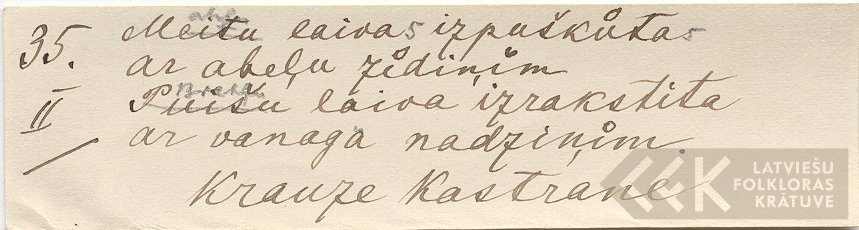 35. Meitu laivas izpuškůtas
ar abeļu zīdiņim
II Puišu laiva izrakstīta
ar vanaga nadziņim.
Krauze Kastrānē
LATVIEŠU
FOLKLORAS
KRĀTUVE